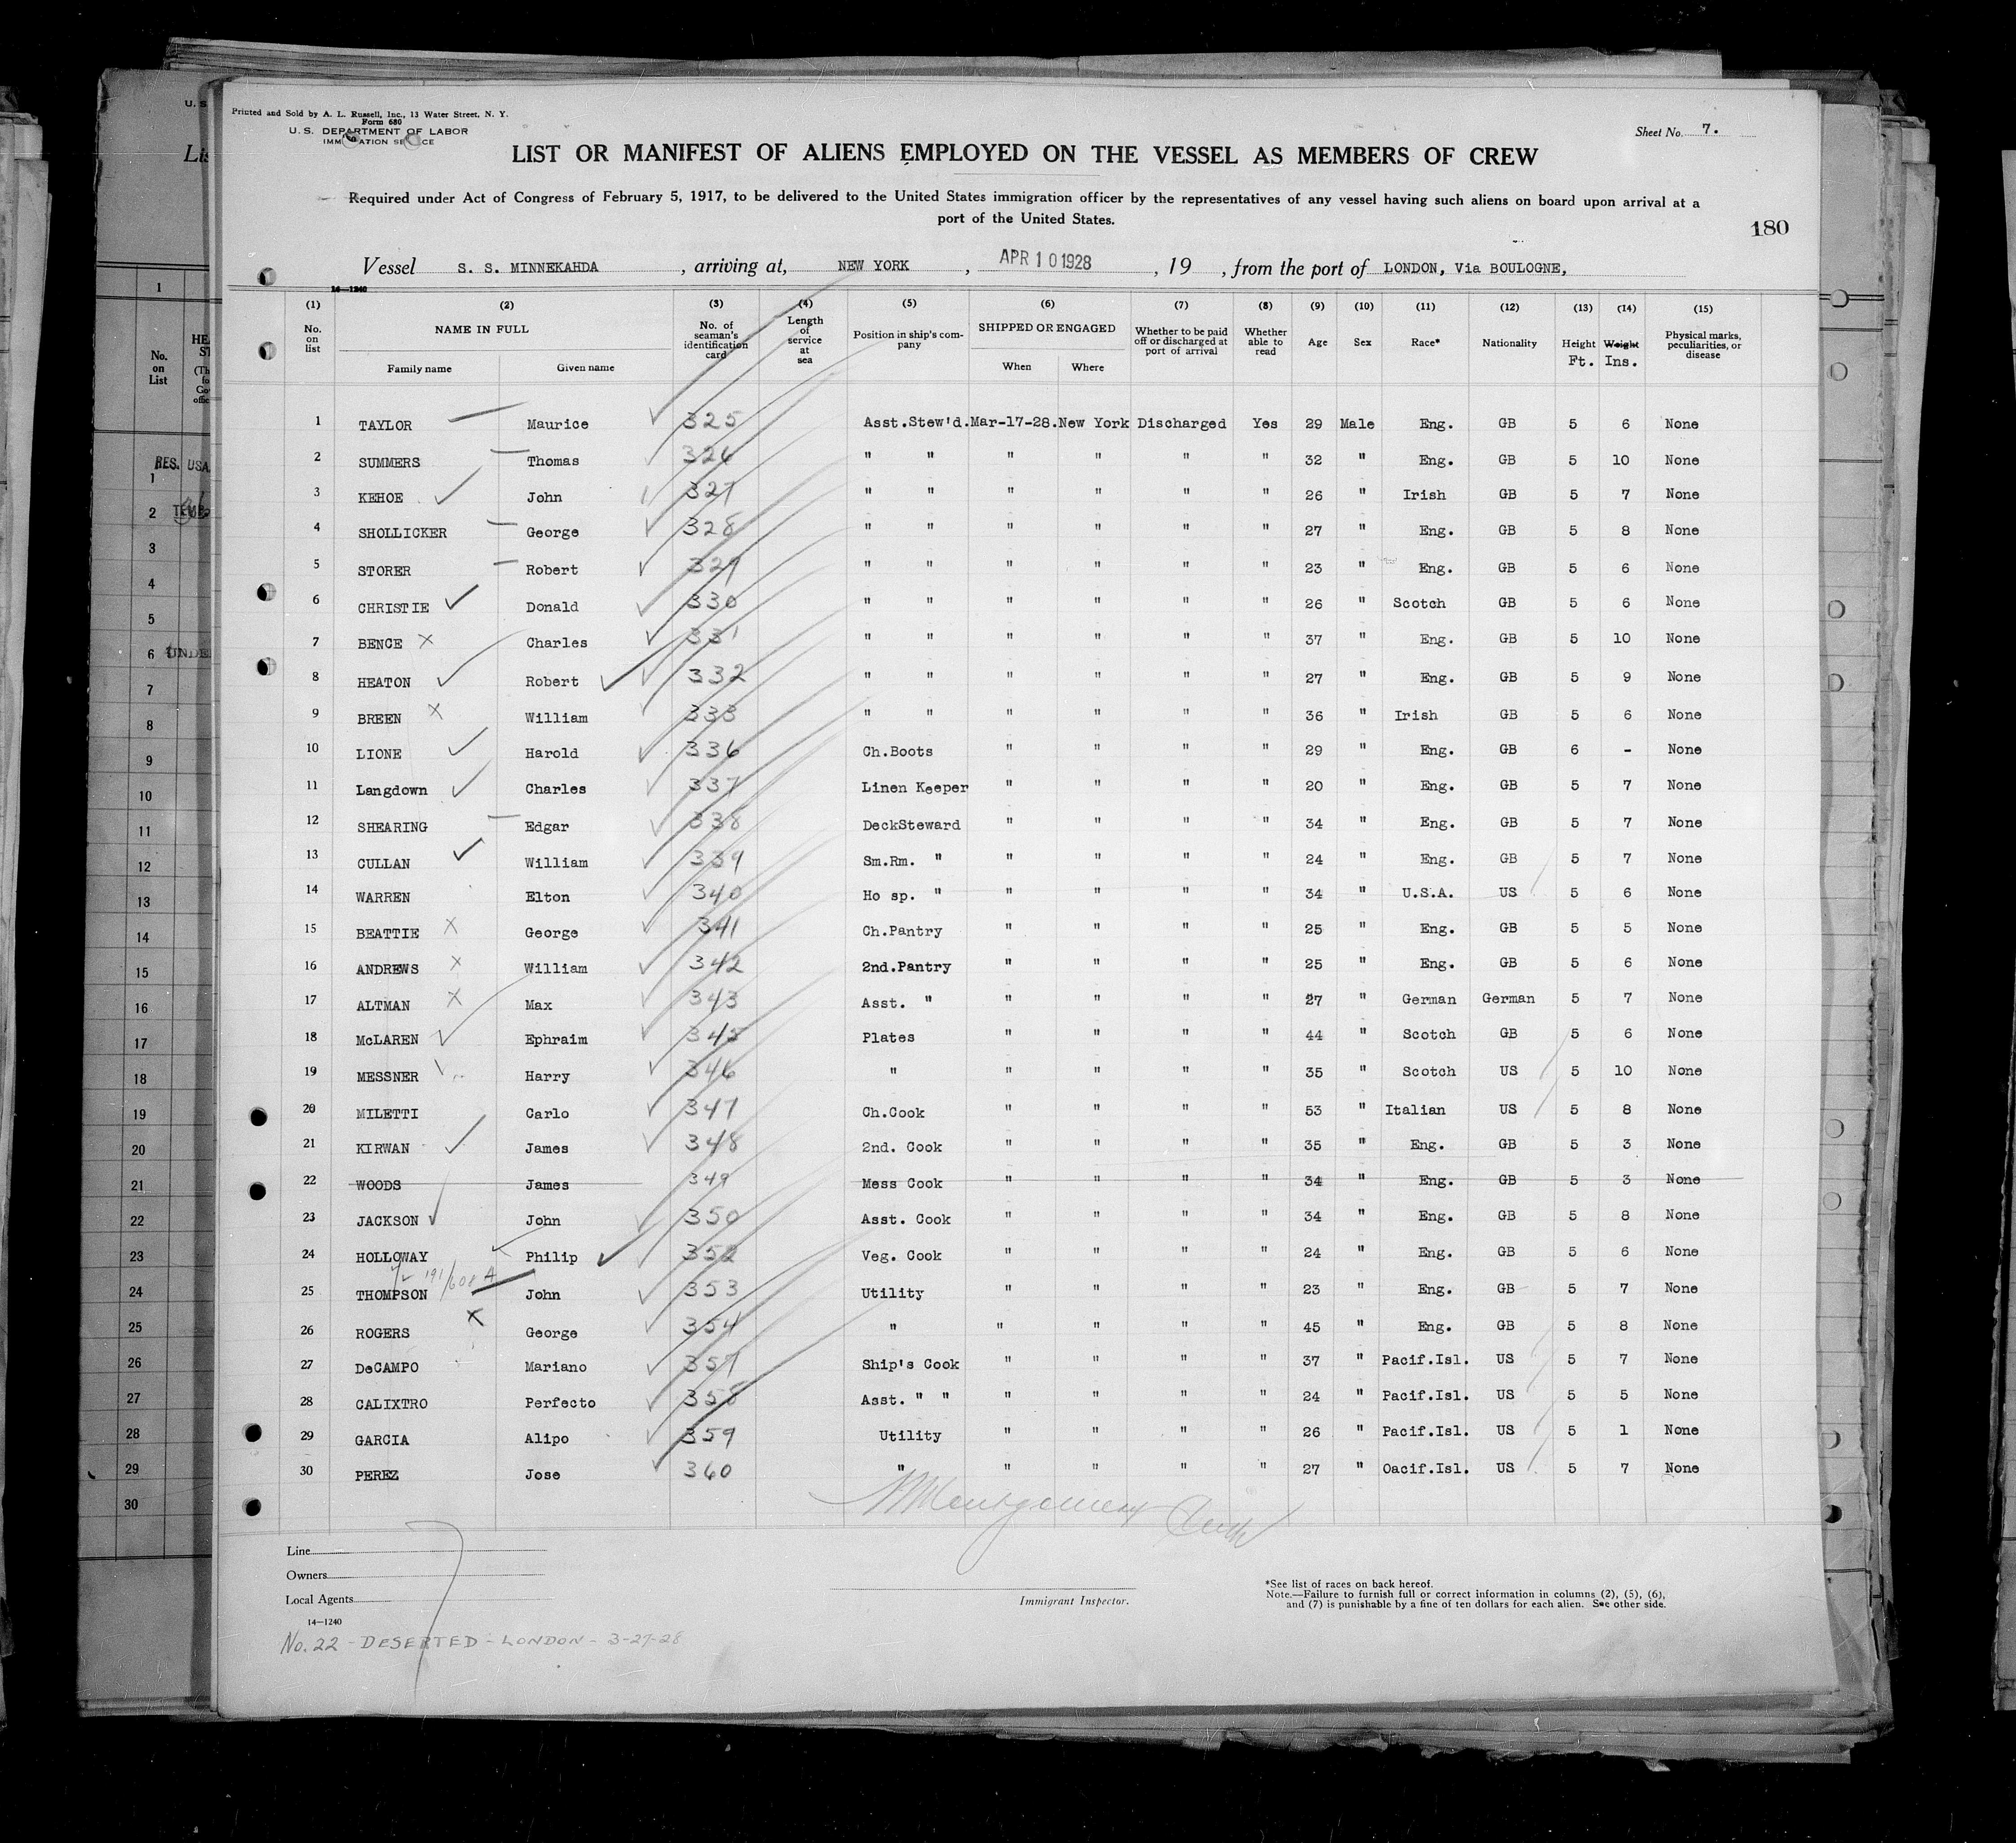 Printed and Sold by A. L. Russell, Inc., 13 Water Street, N. Y.
Form 680
U.S. DEPARTMENT OF LABOR
IMMIGRATION SERVICE
Sheet No. 7.
LIST OR MANIFEST OF ALIENS EMPLOYED ON THE VESSEL AS MEMBERS OF CREW
Required under Act of Congress of February 5, 1917, to be delivered to the United States immigration officer by the representatives of any vessel having such aliens on board upon arrival at a
port of the United States.
180
Vessel S. S. MINNEKAHDA, arriving at, NEW YORK, APR 10 1928, 19 , from the port of LONDON, Via BOULOGNE,
14—1240
(1) (2) (3) (4) (5) (6) (7) (8) (9) (10) (11) (12) (13) (14) (15)
No. on list NAME IN FULL Family name Given name No. of seaman's identification card Length of service at sea Position in ship's company SHIPPED OR ENGAGED When Where Whether to be paid off or discharged at port of arrival Whether able to read Age Sex Race* Nationality Height Ft. Weight Ins. Physical marks, peculiarities, or disease
1 TAYLOR Maurice 325 Asst.Stew'd. Mar-17-28. New York Discharged Yes 29 Male Eng. GB 5 6 None
2 SUMMERS Thomas 326 " " " " " " 32 " Eng. GB 5 10 None
3 KEHOE John 327 " " " " " " 26 " Irish GB 5 7 None
4 SHOLLICKER George 328 " " " " " " 27 " Eng. GB 5 8 None
5 STORER Robert 329 " " " " " " 23 " Eng. GB 5 6 None
6 CHRISTIE Donald 330 " " " " " " 26 " Scotch GB 5 6 None
7 BENCE Charles 331 " " " " " " 37 " Eng. GB 5 10 None
8 HEATON Robert 332 " " " " " " 27 " Eng. GB 5 9 None
9 BREEN William 333 " " " " " " 36 " Irish GB 5 6 None
10 LIONE Harold 336 Ch.Boots " " " " 29 " Eng. GB 6 - None
11 Langdown Charles 337 Linen Keeper " " " " 20 " Eng. GB 5 7 None
12 SHEARING Edgar 338 DeckSteward " " " " 34 " Eng. GB 5 7 None
13 CULLAN William 339 Sm.Rm. " " " " " 24 " Eng. GB 5 7 None
14 WARREN Elton 340 Ho sp. " " " " " 34 " U.S.A. US 5 6 None
15 BEATTIE George 341 Ch.Pantry " " " " 25 " Eng. GB 5 5 None
16 ANDREWS William 342 2nd.Pantry " " " " 25 " Eng. GB 5 6 None
17 ALTMAN Max 343 Asst. " " " " " 27 " German German 5 7 None
18 McLAREN Ephraim 345 Plates " " " " 44 " Scotch GB 5 6 None
19 MESSNER Harry 346 " " " " " 35 " Scotch US 5 10 None
20 MILETTI Carlo 347 Ch.Cook " " " " 53 " Italian US 5 8 None
21 KIRWAN James 348 2nd. Cook " " " " 35 " Eng. GB 5 3 None
22 WOODS James 349 Mess Cook " " " " 34 " Eng. GB 5 3 None
23 JACKSON John 350 Asst. Cook " " " " 34 " Eng. GB 5 8 None
24 HOLLOWAY Philip 352 Veg. Cook " " " " 24 " Eng. GB 5 6 None
191/608 A
25 THOMPSON John 353 Utility " " " " 23 " Eng. GB 5 7 None
26 ROGERS George 354 " " " " " 45 " Eng. GB 5 8 None
27 DeCAMPO Mariano 357 Ship's Cook " " " " 37 " Pacif.Isl. US 5 7 None
28 CALIXTRO Perfecto 358 Asst. " " " " " " 24 " Pacif.Isl. US 5 5 None
29 GARCIA Alipo 359 Utility " " " " 26 " Pacif.Isl. US 5 1 None
30 PEREZ Jose 360 " " " " " 27 " Oacif.Isl. US 5 7 None
Montgomery
Line
Owners
Local Agents
14—1240
Immigrant Inspector.
*See list of races on back hereof.
Note.—Failure to furnish full or correct information in columns (2), (5), (6),
and (7) is punishable by a fine of ten dollars for each alien. See other side.
No. 22 - DESERTED - LONDON - 3-27-28
7
U. S.
Lis
1
No. on List
RES. USA.
1
2
3
4
5
6 UNDE
7
8
9
10
11
12
13
14
15
16
17
18
19
20
21
22
23
24
25
26
27
28
29
30